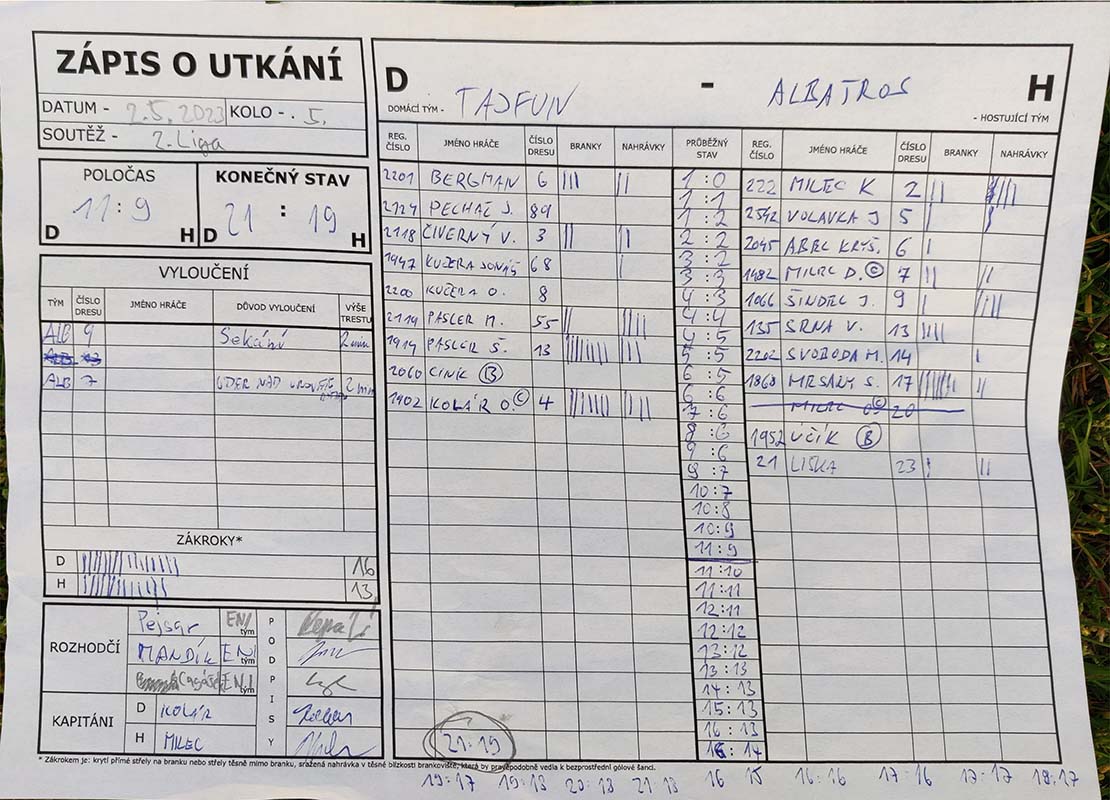 ZÁPIS O UTKÁNÍ
DATUM - 2.5.2023 KOLO - . 5.
SOUTĚŽ - 2. Liga
POLOČAS
11 : 9
D H
KONEČNÝ STAV
21 : 19
D H
VYLOUČENÍ
TÝM ČÍSLO DRESU JMÉNO HRÁČE DŮVOD VYLOUČENÍ VÝŠE TRESTU
ALB 9 Sekání 2 min
ALB 7 ÚDER NAD 2 min
ZÁKROKY*
D 16
H 13
ROZHODČÍ
Pejsar EN/ tým
MANDÍK EN/ tým
EN/ tým
PODPISY
KAPITÁNI
D KOLÁR
H MILEC
D - H
DOMÁCÍ TÝM - TAJFUN ALBATROS - HOSTUJÍCÍ TÝM
REG. ČÍSLO JMÉNO HRÁČE ČÍSLO DRESU BRANKY NAHRÁVKY PRŮBĚŽNÝ STAV REG. ČÍSLO JMÉNO HRÁČE ČÍSLO DRESU BRANKY NAHRÁVKY
2201 BERGMAN 6 1:0 222 MILEC K 2
2124 PECHAČ J. 89 1:1
1:2 2542 VOLAVKA J 5
2118 ČIVERNÝ V. 3 2:2 2045 ABEL KRYŠ. 6
1947 KUČERA JONÁŠ 68 3:2
3:3 1982 MILEC D. © 7
2200 KUČERA O. 8 4:3 1066 ŠINDEL J. 9
2119 PASLER M. 55 4:4 135 SRNA V. 13
4:5
1919 PASLER Š. 13 5:5 2202 SVOBODA M. 14
2060 CINÍK Ⓑ 6:5 1860 MRSANY S. 17
6:6
1902 KOLÁR O. © 4 7:6 MILEC © 20
8:6 1952 ÚČÍK Ⓑ
9:6
9:7 21 LISKA 23
10:7
10:8
10:9
11:9
11:10
11:11
12:11
12:12
13:12
13:13
14:13
15:13
16:13
16:14
21:19
* Zákrokem je: krytí přímé střely na branku nebo střely těsně mimo branku, sražená nahrávka v těsné blízkosti brankoviště, která by pravděpodobně vedla k bezprostřední gólové šanci.
19:17 19:18 20:18 21:18 16 15 16:16 17:16 17:17 18:17